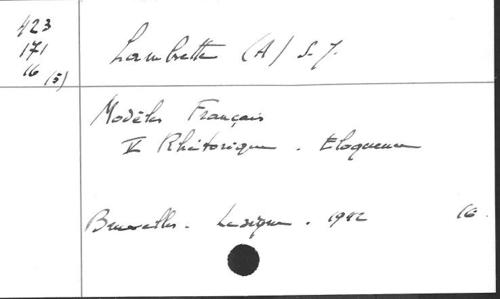 423
171
16 (5)
Lambrette (A) S.J.
Modèles Français
V Rhétorique. Eloquence
Bruxelles. Lesigne. 1942 16.